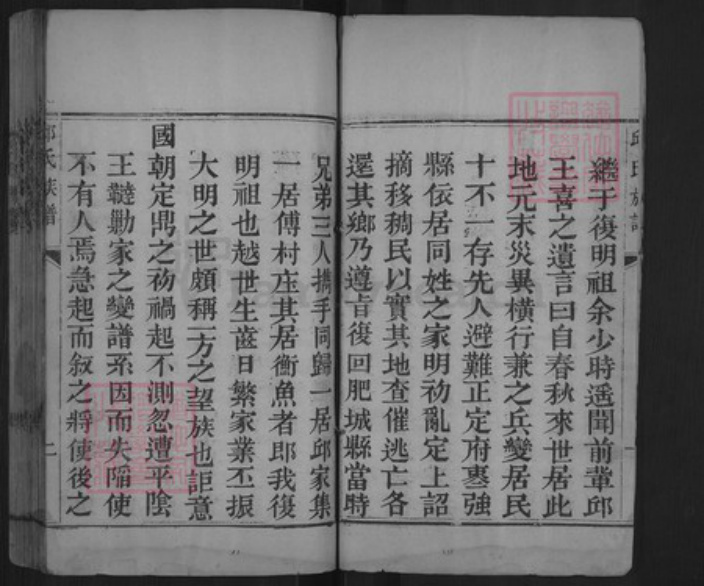 邱氏族譜
繼于復明祖余少時遥聞前輩邱
王喜之遺言曰自春秋來世居此
地元末災異橫行兼之兵變居民
十不一存先人避難正定府棗強
縣依居同姓之家明初亂定上詔
摘移稠民以實其地查催逃亡各
還其鄉乃遵旨復回肥城縣當時
兄弟三人攜手同歸一居邱家集
一居傅村庄其居衡魚者即我復
明祖也越世生齒日繁家業丕振
大明之世頗稱一方之望族也詎意
國朝定鼎之初禍起不測忽遭平陰
王韃勦家之變譜系因而失陷使
不有人焉急起而叙之將使後之
邱氏族譜
二